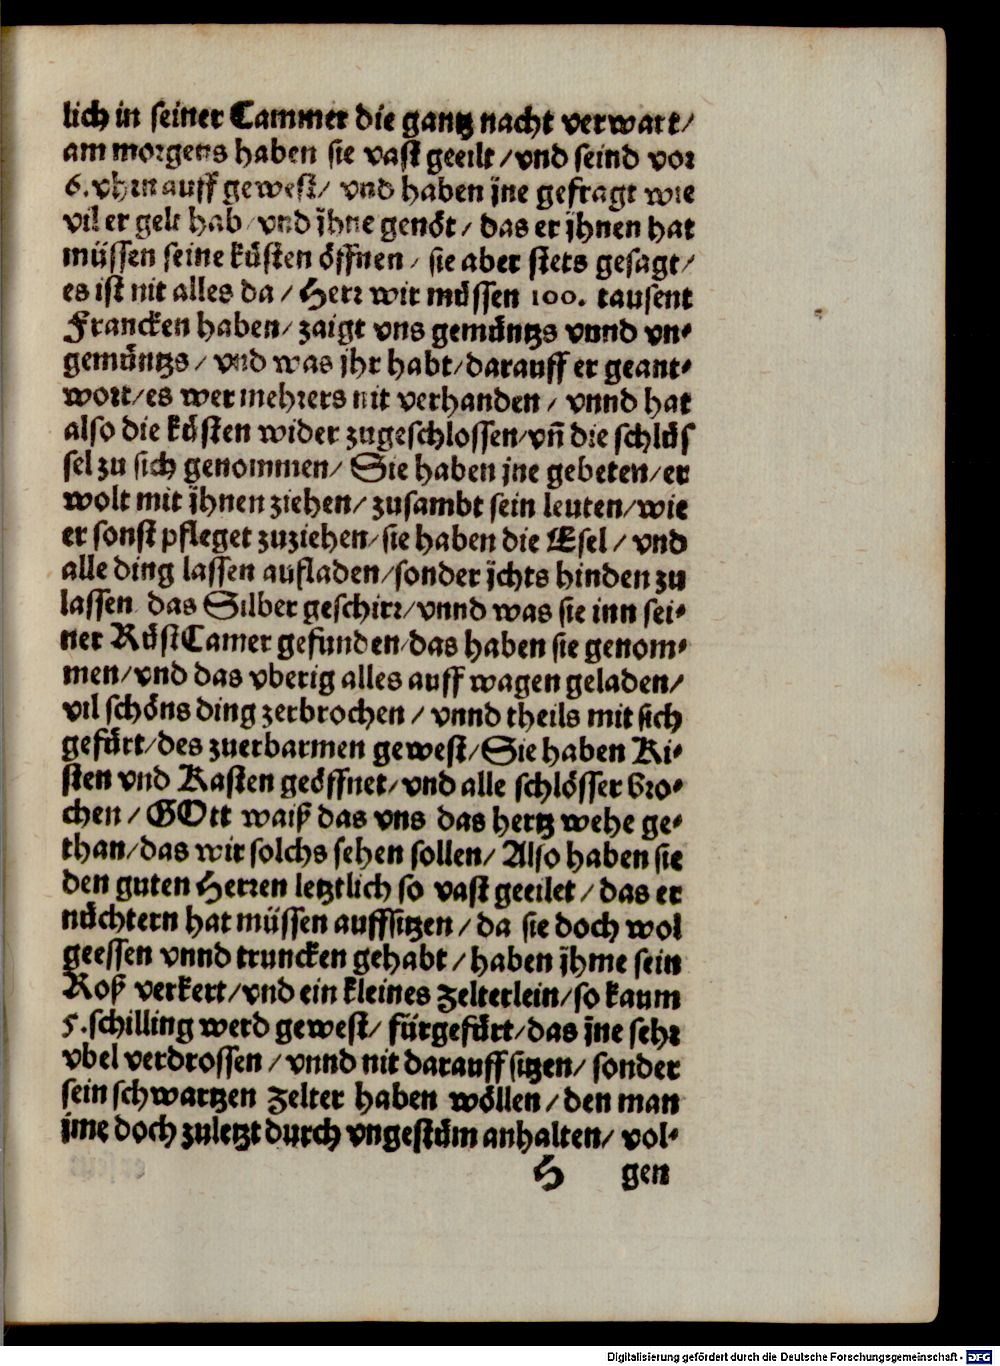 lich in seiner Cammer die gantz nacht verwart/
am morgens haben sie vast geeilt/vnd seind vor
6.vhrn auff gewest/ vnd haben jne gefragt wie
vil er gelt hab vnd jhne genöt/ das er jhnen hat
müssen seine kůsten öffnen/ sie aber stets gesagt/
es ist nit alles da/ Herr wir můssen 100. tausent
Francken haben/ zaigt vns gemůntzs vnnd vn-
gemůntzs/ vnd was jhr habt/darauff er geant-
wort/es wer mehrers nit verhanden/ vnnd hat
also die kůsten wider zugeschlossen/vñ die schlůs
sel zu sich genommen/ Sie haben jne gebeten/er
wolt mit jhnen ziehen/ zusambt sein leuten/wie
er sonst pfleget zuziehen/sie haben die Esel/ vnd
alle ding lassen aufladen/sonder jchts hinden zu
lassen das Silber geschirr/vnnd was sie inn sei-
ner RůstCamer gefunden/das haben sie genom-
men/vnd das vberig alles auff wagen geladen/
vil schöns ding zerbrochen/ vnnd theils mit sich
gefůrt/des zuerbarmen gewest/Sie haben Ki-
sten vnd Kasten geöffnet/vnd alle schlösser bro-
chen/ GOtt waiß das vns das hertz wehe ge-
than/das wir solchs sehen sollen/ Also haben sie
den guten Herren letztlich so vast geeilet/ das er
nůchtern hat müssen auffsitzen/ da sie doch wol
geessen vnnd truncken gehabt/ haben jhme sein
Roß verkert/vnd ein kleines Zelterlein/so kaum
5.schilling werd gewest/ fürgefůrt/das jne sehr
vbel verdrossen/vnnd nit darauff sitzen/ sonder
sein schwartzen Zelter haben wöllen/den man
jme doch zuletzt durch vngestům anhalten/ vol-
H gen
Digitalisierung gefördert durch die Deutsche Forschungsgemeinschaft - DFG